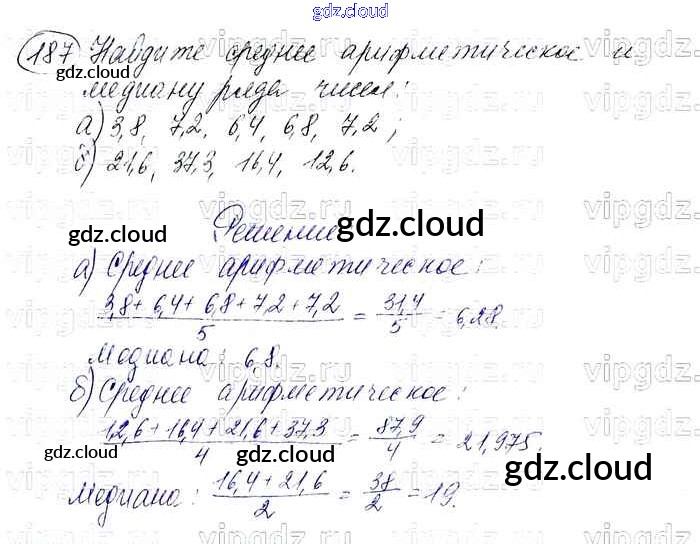 gdz.cloud
187 Найдите среднее арифметическое и
gdz.cloud
медиану ряда чисел:
а) 3,8, 7,2, 6,4, 6,8, 7,2;
б) 21,6, 37,3, 16,4, 12,6.
Решение
gdz.cloud gdz.cloud
а) Среднее арифметическое:
3,8 + 6,4 + 6,8 + 7,2 + 7,2 / 5 = 31,4 / 5 = 6,28.
Медиана: 6,8.
gdz.cloud
б) Среднее арифметическое:
12,6 + 16,4 + 21,6 + 37,3 / 4 = 87,9 / 4 = 21,975,
gdz.cloud gdz.cloud
Медиана: 16,4 + 21,6 / 2 = 38 / 2 = 19.
gdz.cloud
vipgdz.ru